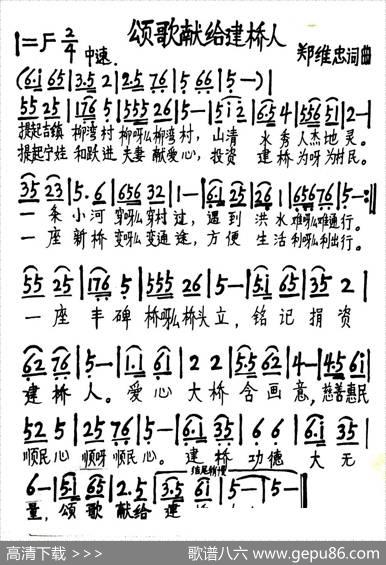 颂歌献给建桥人
1=F 2/4 中速.
郑维忠词曲
(6·1 65|3·5 2|2·5 76|5 66|5 —)|
55 25|176 5|555 26|5—|512|
提起古镇 柳湾村 柳呀么柳湾村，山清 水秀人杰地灵。
提起宁娃 和跃进 夫妻 献爱心，投资 建桥为呀为村民。
35 23|5·6|656 32|1—|
一条小河 穿呀么穿村过，遇到 洪水难呀么难通行。
一座新桥 变呀么变通途，方便 生活利呀么利出行。
55 25|176 5|555 26|5—|51 65|35 2|
一座 丰碑 桥呀么桥头立，铭记 捐资
62 76|5—|1·1 61|22|55 62|4—|45 61|
建桥人。爱心大桥含画意，慈善惠民
52 5|25 76|5—|6·1 35|6 6|6·1 35|
顺民心 顺呀顺民心。建桥功德 大无
结尾稍慢
6—|51 65|2·5|3·5 61|5—|5—|
量，颂歌献给建
高清下载 >>>
歌谱八六 www.gepu86.com